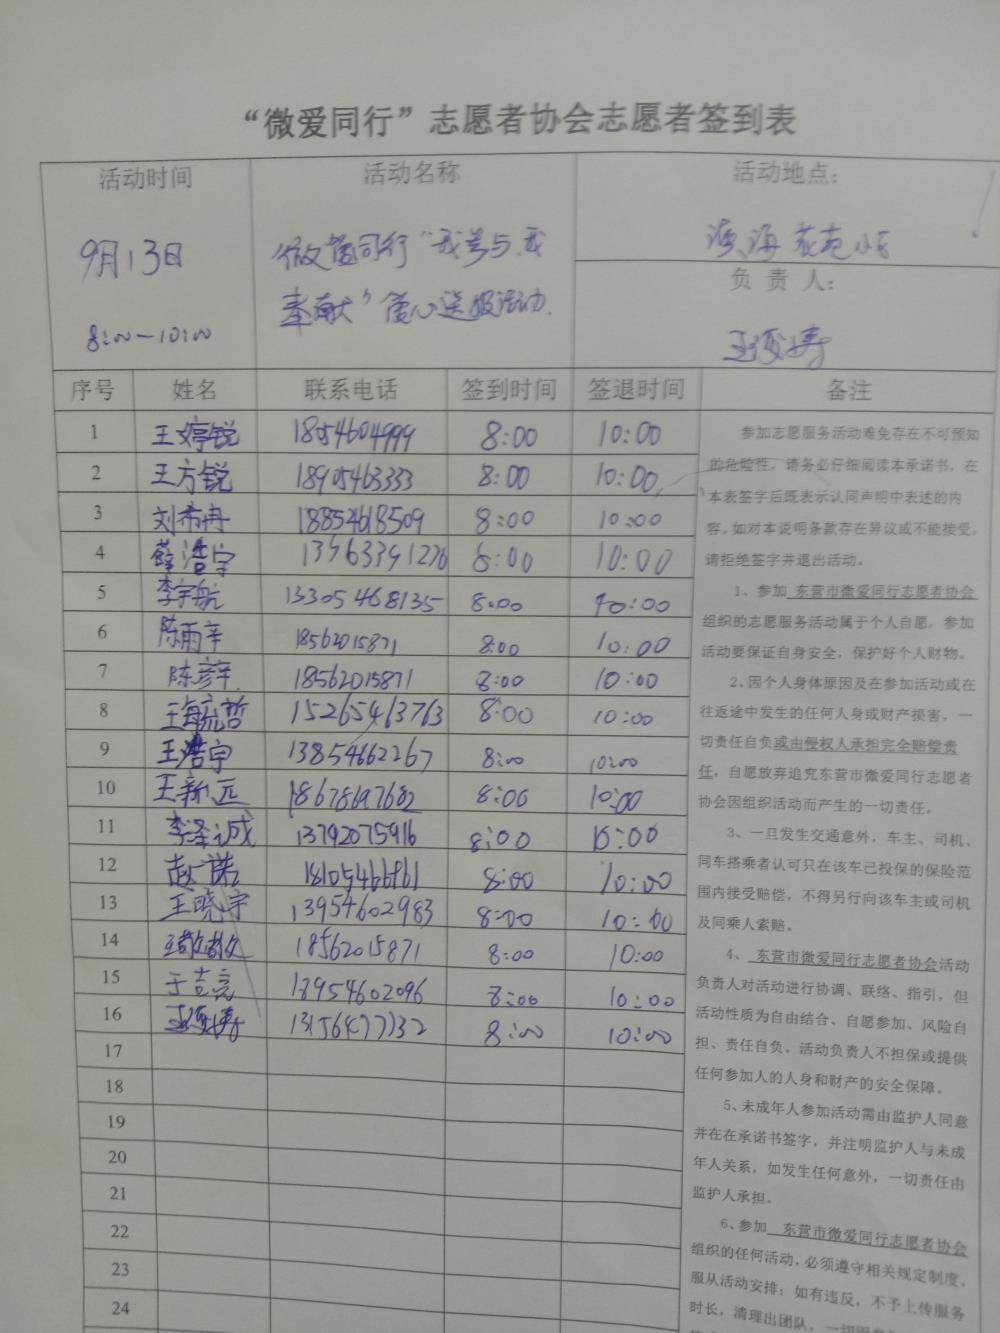 “微爱同行”志愿者协会志愿者签到表
活动时间
9月13日
8:00—10:00
活动名称
微爱同行“我参与.我
奉献”爱心送报活动.
活动地点:
滨海花苑小区
负责人:
序号 姓名 联系电话 签到时间 签退时间 备注
1 王婷锐 18054604999 8:00 10:00
2 王方锐 18905463333 8:00 10:00
3 刘希冉 18854618509 8:00 10:00
4 薛浩宇 13963391276 8:00 10:00
5 李宇航 13305468135 8:00 10:00
6 陈雨辛 18562015871 8:00 10:00
7 陈彦辛 18562015871 8:00 10:00
8 王毓哲 15265463763 8:00 10:00
9 王浩宇 13854662267 8:00 10:00
10 王新远 18678697682 8:00 10:00
11 李泽诚 13792075916 8:00 10:00
12 赵一诺 8:00 10:00
13 王晓宇 13954602983 8:00 10:00
14 18562015871 8:00 10:00
15 于吉亮 13954602096 8:00 10:00
16 13156477732 8:00 10:00
17
18
19
20
21
22
23
24
参加志愿服务活动难免存在不可预知
的危险性，请务必仔细阅读本承诺书，在
本表签字后既表示认同声明中表述的内
容。如对本说明条款存在异议或不能接受，
请拒绝签字并退出活动。
1、参加 东营市微爱同行志愿者协会
组织的志愿服务活动属于个人自愿，参加
活动要保证自身安全，保护好个人财物。
2、因个人身体原因及在参加活动或在
往返途中发生的任何人身或财产损害，一
切责任自负或由侵权人承担完全赔偿责
任，自愿放弃追究东营市微爱同行志愿者
协会因组织活动而产生的一切责任。
3、一旦发生交通意外，车主、司机、
同车搭乘者认可只在该车已投保的保险范
围内接受赔偿，不得另行向该车主或司机
及同乘人索赔。
4、 东营市微爱同行志愿者协会活动
负责人对活动进行协调、联络、指引，但
活动性质为自由结合、自愿参加、风险自
担、责任自负。活动负责人不担保或提供
任何参加人的人身和财产的安全保障。
5、未成年人参加活动需由监护人同意
并在在承诺书签字，并注明监护人与未成
年人关系，如发生任何意外，一切责任由
监护人承担。
6、参加 东营市微爱同行志愿者协会
组织的任何活动，必须遵守相关规定制度，
服从活动安排；如有违反，不予上传服务
时长，清理出团队，一切因